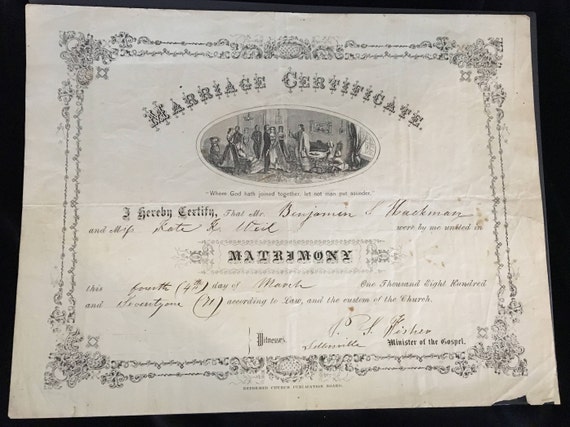 MARRIAGE CERTIFICATE.
"Where God hath joined together, let not man put asunder."
I Hereby Certify, That Mr. Benjamin S Hackman
and Miss Kate K. Weil were by me united in
MATRIMONY
this fourth (4th) day of March One Thousand Eight Hundred
and Seventyone (71) according to Law, and the custom of the Church.
Witnesses. P. S. Fisher
Sellersville Minister of the Gospel.
REFORMED CHURCH PUBLICATION BOARD.